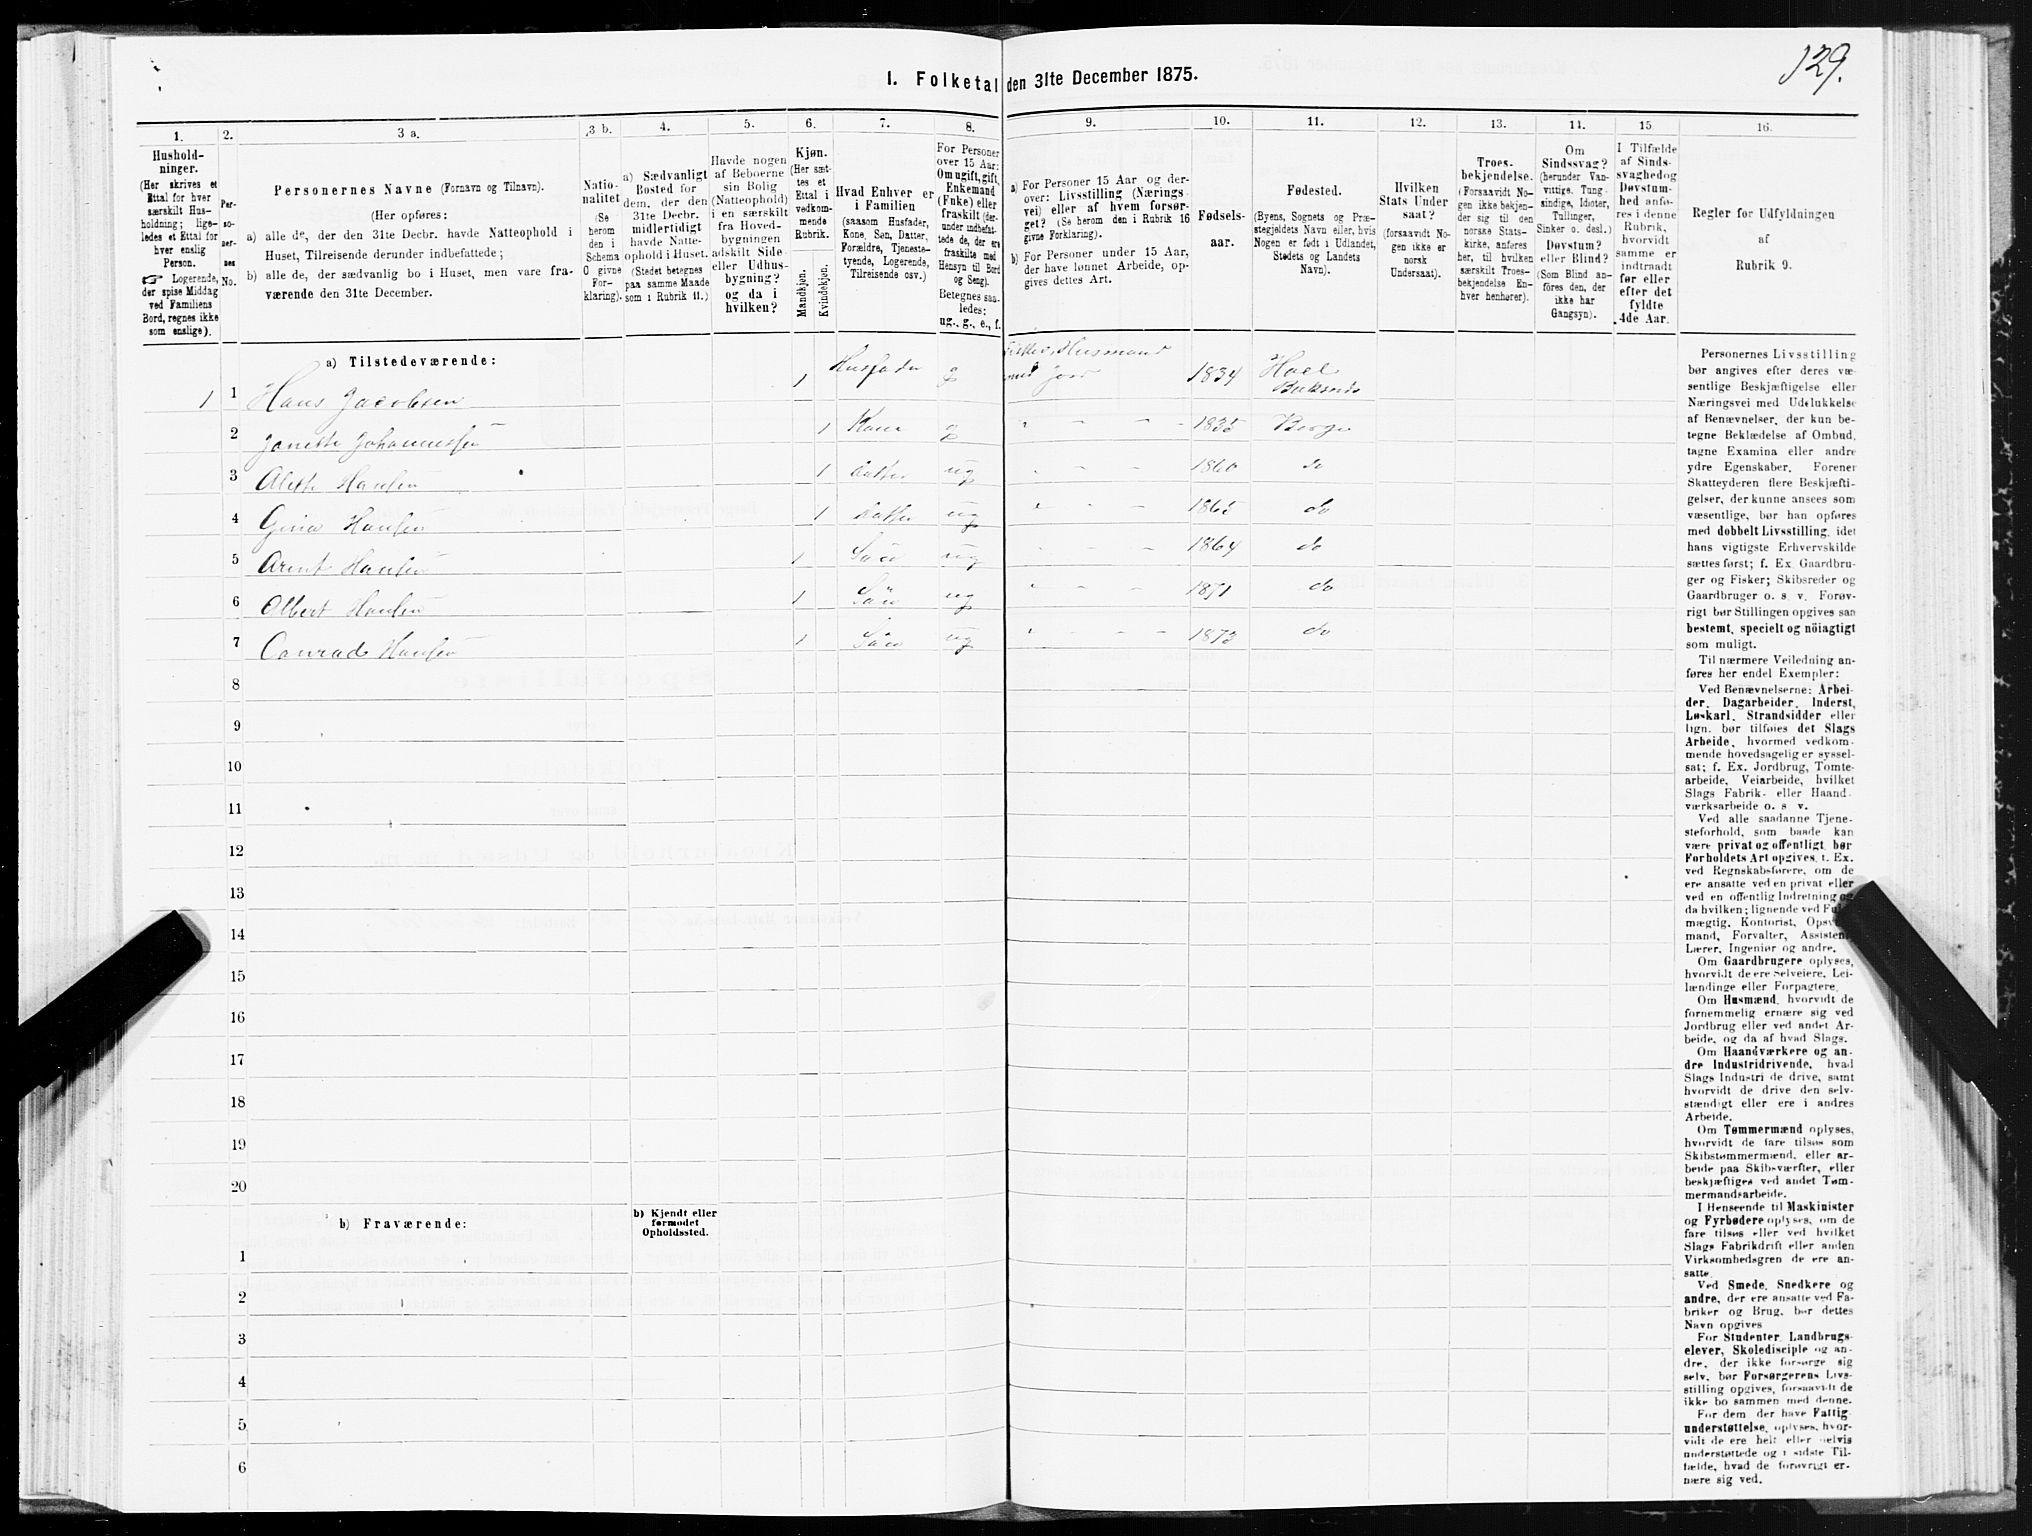 129.
I. Folketal den 31te December 1875.
1. 2. 3 a. 3 b. 4. 5. 6. 7. 8. 9. 10. 11. 12. 13. 14. 15 16.
Hushold-
ninger.
(Her skrives et
Ettal for hver
særskilt Hus-
holdning; lige-
ledes et Ettal for
hver enslig
Person.
☞ Logerende,
der spise Middag
ved Familiens
Bord, regnes ikke
som enslige).
Per-
so-
ner-
nes
No.
Personernes Navne (Fornavn og Tilnavn).
(Her opføres:
a) alle de, der den 31te Decbr. havde Natteophold i
Huset, Tilreisende derunder indbefattede;
b) alle de, der sædvanlig bo i Huset, men vare fra-
værende den 31te December.
Natio-
nalitet
(Se
herom
den i
Schema
O givne
For-
klaring).
a) Sædvanligt
Bosted for
dem, der den
31te Decbr.
midlertidigt
havde Natte-
ophold i Huset.
(Stedet betegnes
paa samme Maade
som i Rubrik 11.)
Havde nogen
af Beboerne
sin Bolig
(Natteophold)
i en særskilt
fra Hoved-
bygningen
adskilt Side-
eller Udhus-
bygning?
og da i
hvilken?
Kjøn.
(Her sæt-
tes et
Ettal i
vedkom-
mende
Rubrik.
Mandkjøn.
Kvindekjøn.
Hvad Enhver er
i Familien
(saasom Husfader,
Kone, Søn, Datter,
Forældre, Tjeneste-
tyende, Logerende,
Tilreisende osv.)
For Personer
over 15 Aar:
Om ugift, gift,
Enkemand
(Enke) eller
fraskilt (der-
under indbefat-
tede de, der ere
fraskilte med
Hensyn til Bord
og Seng).
Betegnes saa-
ledes:
ug., g., e., f.
a) For Personer 15 Aar og der-
over: Livsstilling (Nærings-
vei) eller af hvem forsør-
get? (Se herom den i Rubrik 16
givne Forklaring).
b) For Personer under 15 Aar,
der have lønnet Arbeide, op-
gives dettes Art.
Fødsels-
aar.
Fødested.
(Byens, Sognets og Præ-
stegjeldets Navn eller, hvis
Nogen er født i Udlandet,
Stedets og Landets
Navn).
Hvilken
Stats Under
saat?
(forsaavidt No-
gen ikke er
norsk
Undersaat).
Troes-
bekjendelse.
(Forsaavidt No-
gen ikke bekjen-
der sig til den
norske Stats-
kirke, anføres
her, til hvilken
særskilt Troes-
bekjendelse En-
hver henhører).
Om
Sindssvag?
(herunder Van-
vittige, Tung-
sindige, Idioter,
Tullinger,
Sinker o. desl.)
Døvstum?
eller Blind?
(Som Blind an-
føres den, der
ikke har
Gangsyn).
I Tilfælde
af Sinds-
svaghed og
Døvstum-
hed anfø-
res i denne
Rubrik,
hvorvidt
samme er
indtraadt
før eller
efter det
fyldte
4de Aar.
Regler for Udfyldningen
af
Rubrik 9.
a) Tilstedeværende:
1 1 Hans Jacobsen 1 Husfader g Fisker, Husmand med Jord 1834 Hoel Buksnæs
2 Janette Johannessen 1 Kone g 1835 Berge
3 Aleth Hansen 1 Datter ug 1860 do
4 Gina Hansen 1 Datter ug 1865 do
5 Arent Hansen 1 Søn ug 1864 do
6 Albert Hansen 1 Søn ug 1871 do
7 Conrad Hansen 1 Søn ug 1873 do
8
9
10
11
12
13
14
15
16
17
18
19
20
b) Fraværende:
b) Kjendt eller
formodet
Opholdssted.
1
2
3
4
5
6
Personernes Livsstilling
bør angives efter deres væ-
sentlige Beskjæftigelse eller
Næringsvei med Udelukkelse
af Benævnelser, der kun be-
tegne Beklædelse af Ombud,
tagne Examina eller andre
ydre Egenskaber. Forener
Skatteyderen flere Beskjæfti-
gelser, der kunne ansees som
væsentlige, bør han opføres
med dobbelt Livsstilling, idet
hans vigtigste Erhvervskilde
sættes først; f. Ex. Gaardbru-
ger og Fisker; Skibsreder og
Gaardbruger o. s. v. Forøv-
rigt bør Stillingen opgives saa
bestemt, specielt og nöiagtigt
som muligt.
Til nærmere Veiledning an-
føres her endel Exempler:
Ved Benævnelserne: Arbei-
der, Dagarbeider, Inderst,
Løskarl, Strandsidder eller
lign. bør tilføies det Slags
Arbeide, hvormed vedkom-
mende hovedsagelig er syssel-
sat; f. Ex. Jordbrug, Tomte-
arbeide, Veiarbeide, hvilket
Slags Fabrik- eller Haand-
værksarbeide o. s v.
Ved alle saadanne Tjene-
steforhold, som baade kan
være privat og offentligt, bør
Forholdets Art opgives, t. Ex.
ved Regnskabsførere, om de
ere ansatte ved en privat eller
ved en offentlig Indretning og
da hvilken; lignende ved Fuld-
mægtig, Kontorist, Opsyns-
mand, Forvalter, Assistent,
Lærer, Ingeniør og andre.
Om Gaardbrugere oplyses,
hvorvidt de ere Selveiere, Lei-
lændinge eller Forpagtere.
Om Husmænd, hvorvidt de
fornemmelig ernære sig ved
Jordbrug eller ved andet Ar-
beide, og da af hvad Slags.
Om Haandværkere og an-
dre Industridrivende, hvad
Slags Industri de drive, samt
hvorvidt de drive den selv-
stændigt eller ere i andres
Arbeide.
Om Tømmermænd oplyses,
hvorvidt de fare tilsøs som
Skibstømmermænd, eller ar-
beide paa Skibsværfter, eller
beskjæftiges ved andet Tøm-
mermandsarbeide.
I Henseende til Maskinister
og Fyrbødere oplyses, om de
fare tilsøs eller ved hvilket
Slags Fabrikdrift eller anden
Virksomhedsgren de ere an-
satte.
Ved Smede, Snedkere og
andre, der ere ansatte ved Fa-
briker og Brug, bør dettes
Navn opgives
For Studenter, Landbrugs-
elever, Skoledisciple og an-
dre, der ikke forsørge sig
selv, bør Forsørgerens Livs-
stilling opgives, forsaavidt de
ikke bo sammen med denne.
For dem, der have Fattig-
understøttelse, oplyses, hvor-
vidt de ere helt eller delvis
understøttede og i sidste Til-
fælde, hvad de forøvrigt er-
nære sig ved.